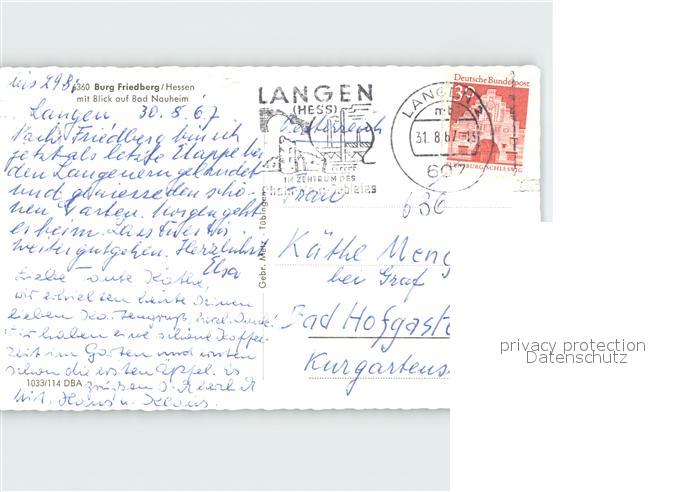 bis 298,
6360 Burg Friedberg/Hessen
mit Blick auf Bad Nauheim
Langen 30.8.67
Nach Friedberg bin ich
jetzt als letzte Etappe bei
den Langenern gelandet
und geniesse den schö-
nen Garten. Morgen geht
es heim. Lass es dir
weiter gutgehen. Herzlichst
Elsa
Liebe Tante Käthe,
wir erhielten heute Deinen
lieben Kartengruß, herzl. Dank!
Wir haben eine schöne Kaffee-
zeit im Garten und
schon die ersten Äpfel. Es
grüßen
Hans u. Klaus.
1033/114 DBA
Gebr. Metz, Tübingen
LANGEN
(HESS)
IM ZENTRUM DES
Rhein-Main-Gebietes
LANGEN 2
31.8.67
607
Deutsche Bundespost
30
FLENSBURG/SCHLESWIG
Österreich
Frau
630
Käthe Meng
bei Graf
Bad Hofgaste
Kurgartens
privacy protection
Datenschutz